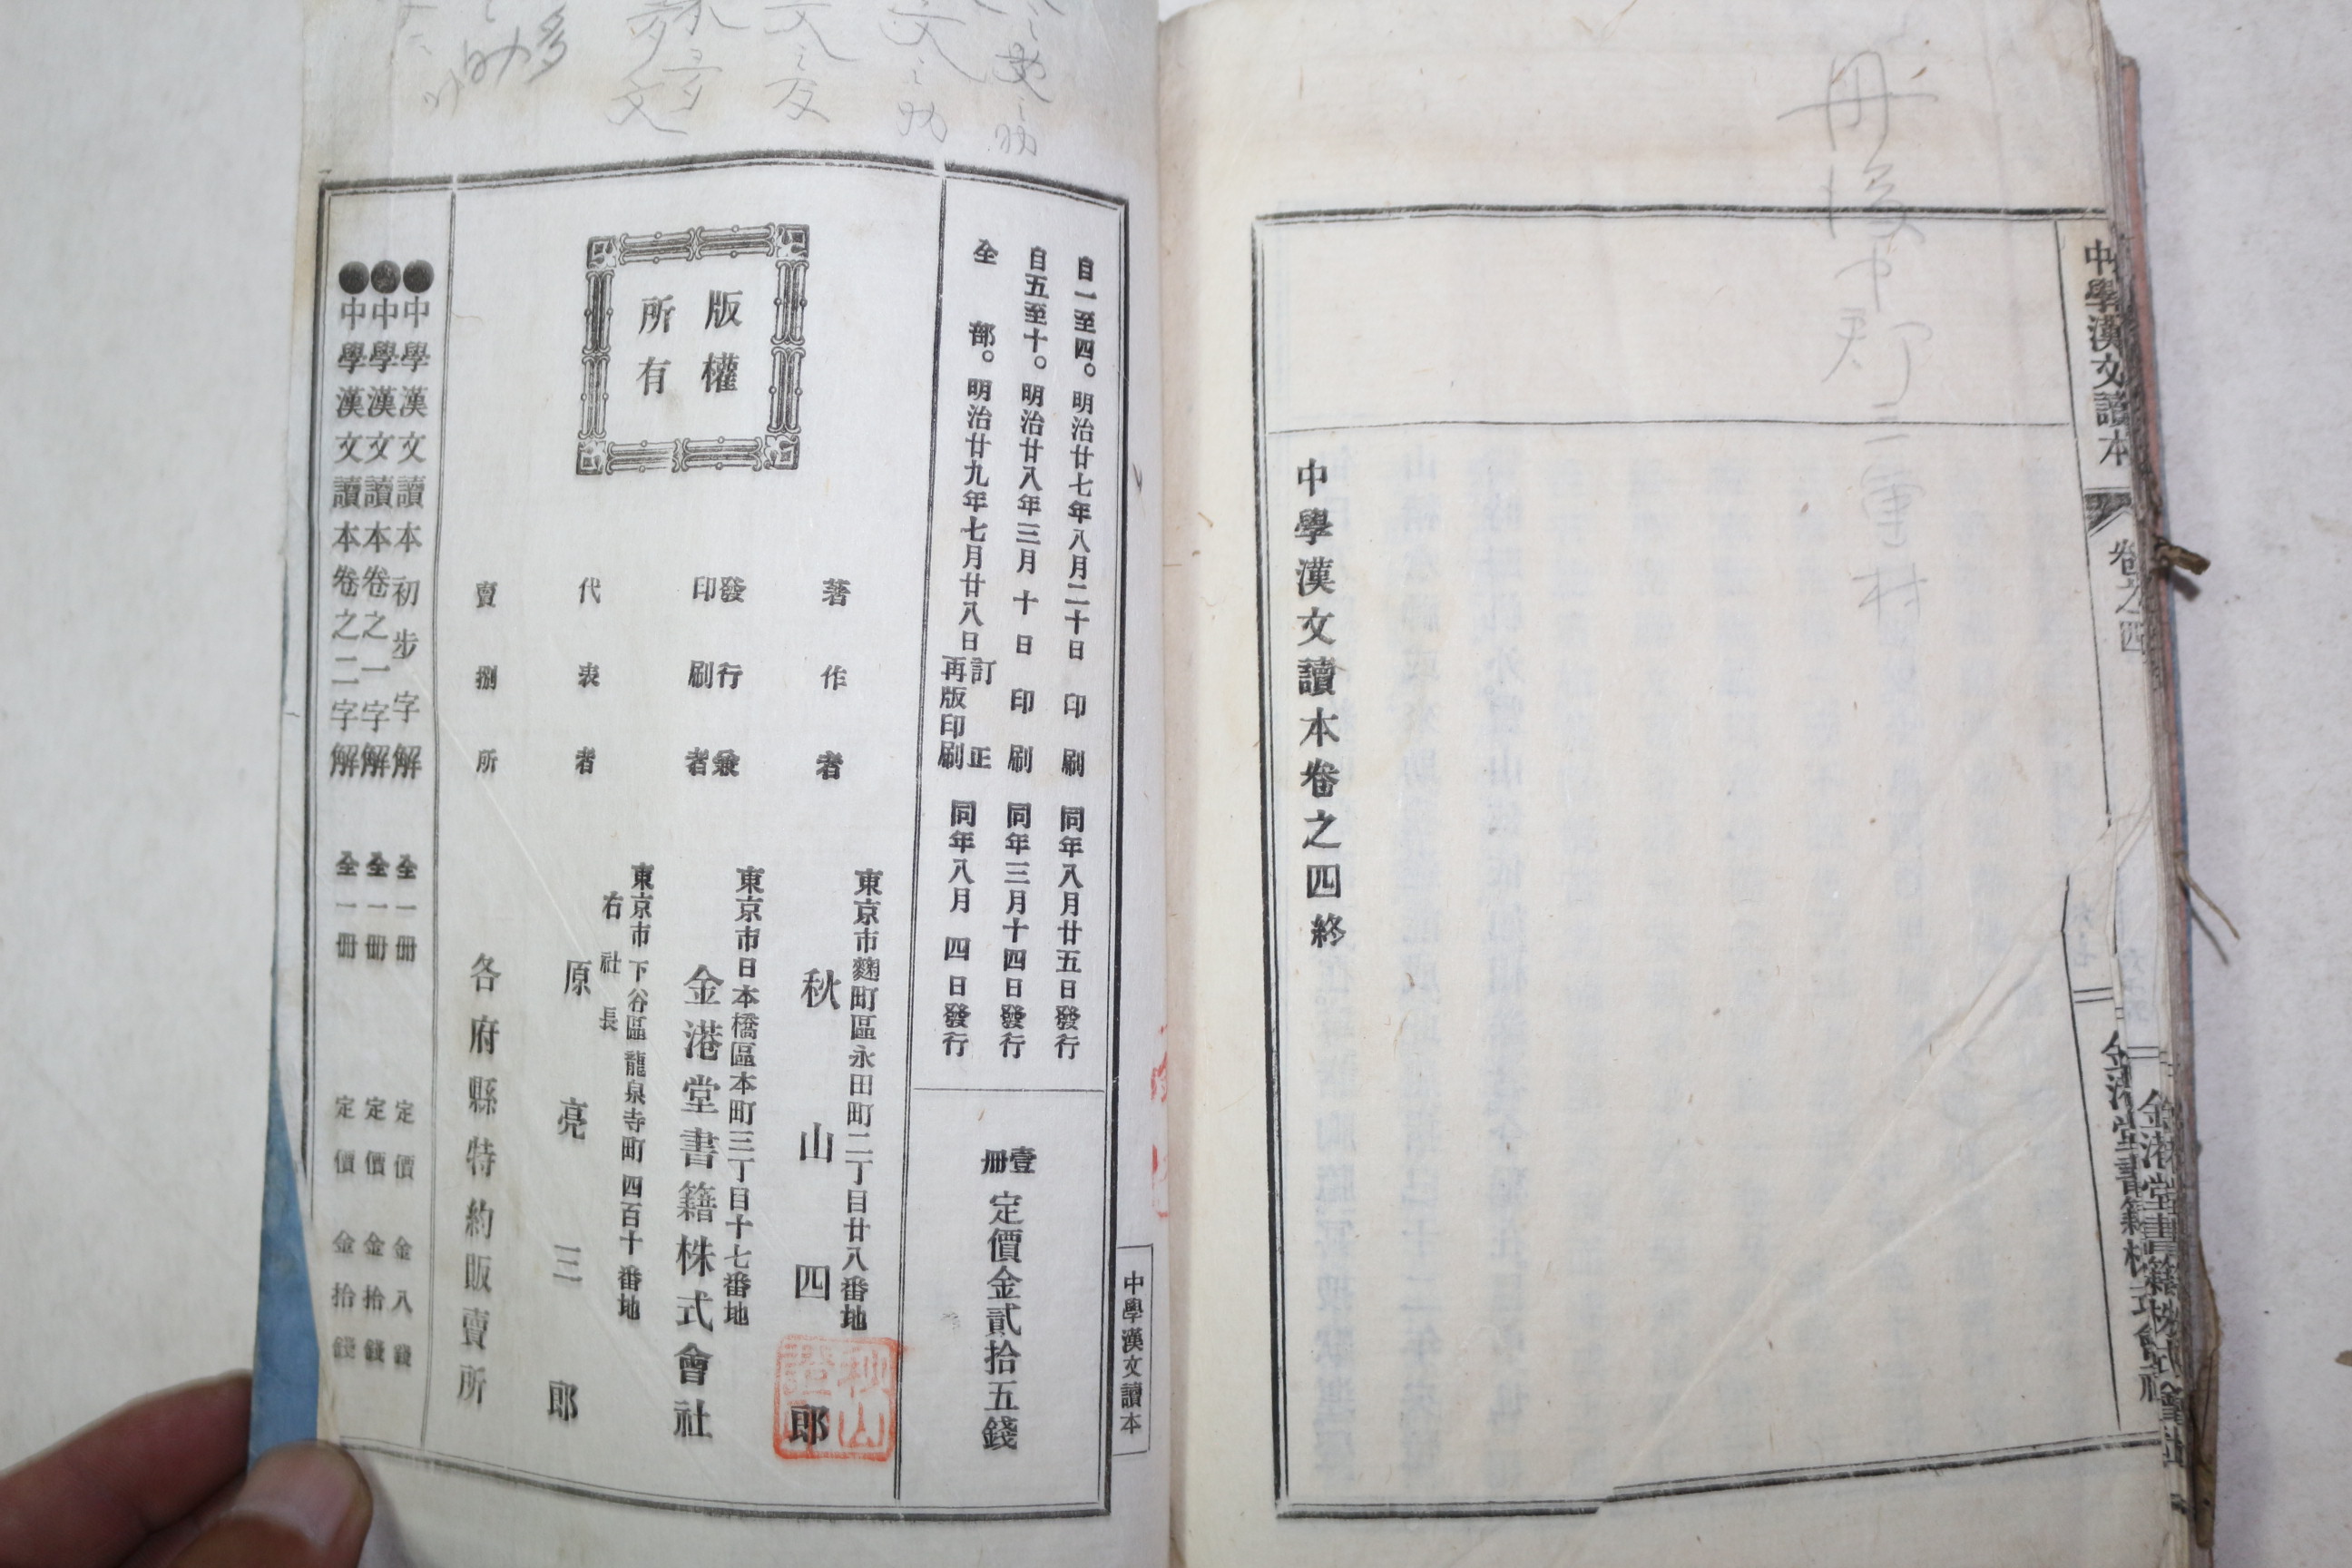 中學漢文讀本
卷之四
金港堂書籍株式會社
中學漢文讀本卷之四終
中郡三重村
中學漢文讀本
自一至四。明治廿七年八月二十日印刷 同年八月廿五日發行
自五至十。明治廿八年三月十日印刷 同年三月十四日發行
全部。明治廿九年七月廿八日訂正再版印刷 同年八月四日發行
壹冊 定價金貳拾五錢
版權所有
東京市麴町區永田町二丁目廿八番地
著作者 秋山四郎
東京市日本橋區本町三丁目十七番地
發行兼印刷者 金港堂書籍株式會社
東京市下谷區龍泉寺町四百十番地
右社長
代表者 原亮三郎
賣捌所 各府縣特約販賣所
●中學漢文讀本初步字解 全一冊 定價金八錢
●中學漢文讀本卷之一字解 全一冊 定價金拾錢
●中學漢文讀本卷之二字解 全一冊 定價金拾錢